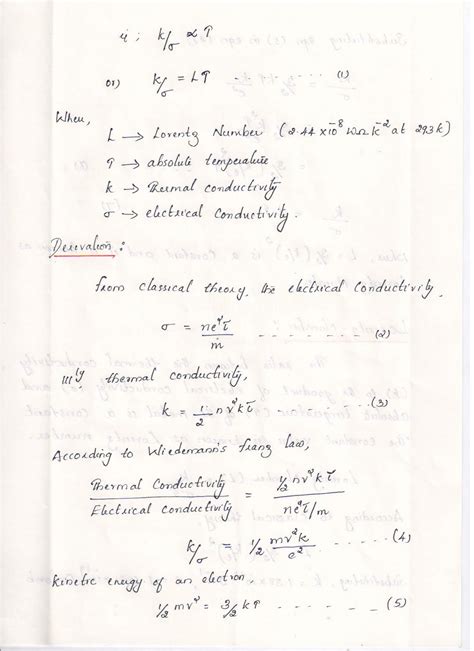 ie; K/σ ∝ T
or) K/σ = LT - - - - (1)
When,
L → Lorentz Number (2.44 x 10⁻⁸ WΩK⁻² at 293k)
T → absolute temperature
k → Thermal conductivity
σ → electrical Conductivity.
Derivation :
From classical theory, the electrical Conductivity,
σ = ne²τ / m - - - - - - (2)
|||ly thermal conductivity,
k = 1/2 nv²kτ - - - - - (3)
According to Wiedemann's Franz law,
Thermal Conductivity / Electrical conductivity = 1/2 nv²kτ / ne²τ/m
K/σ = 1/2 mv²k / e² - - - - (4)
Kinetic energy of an electron,
1/2 mv² = 3/2 kT - - - - (5)